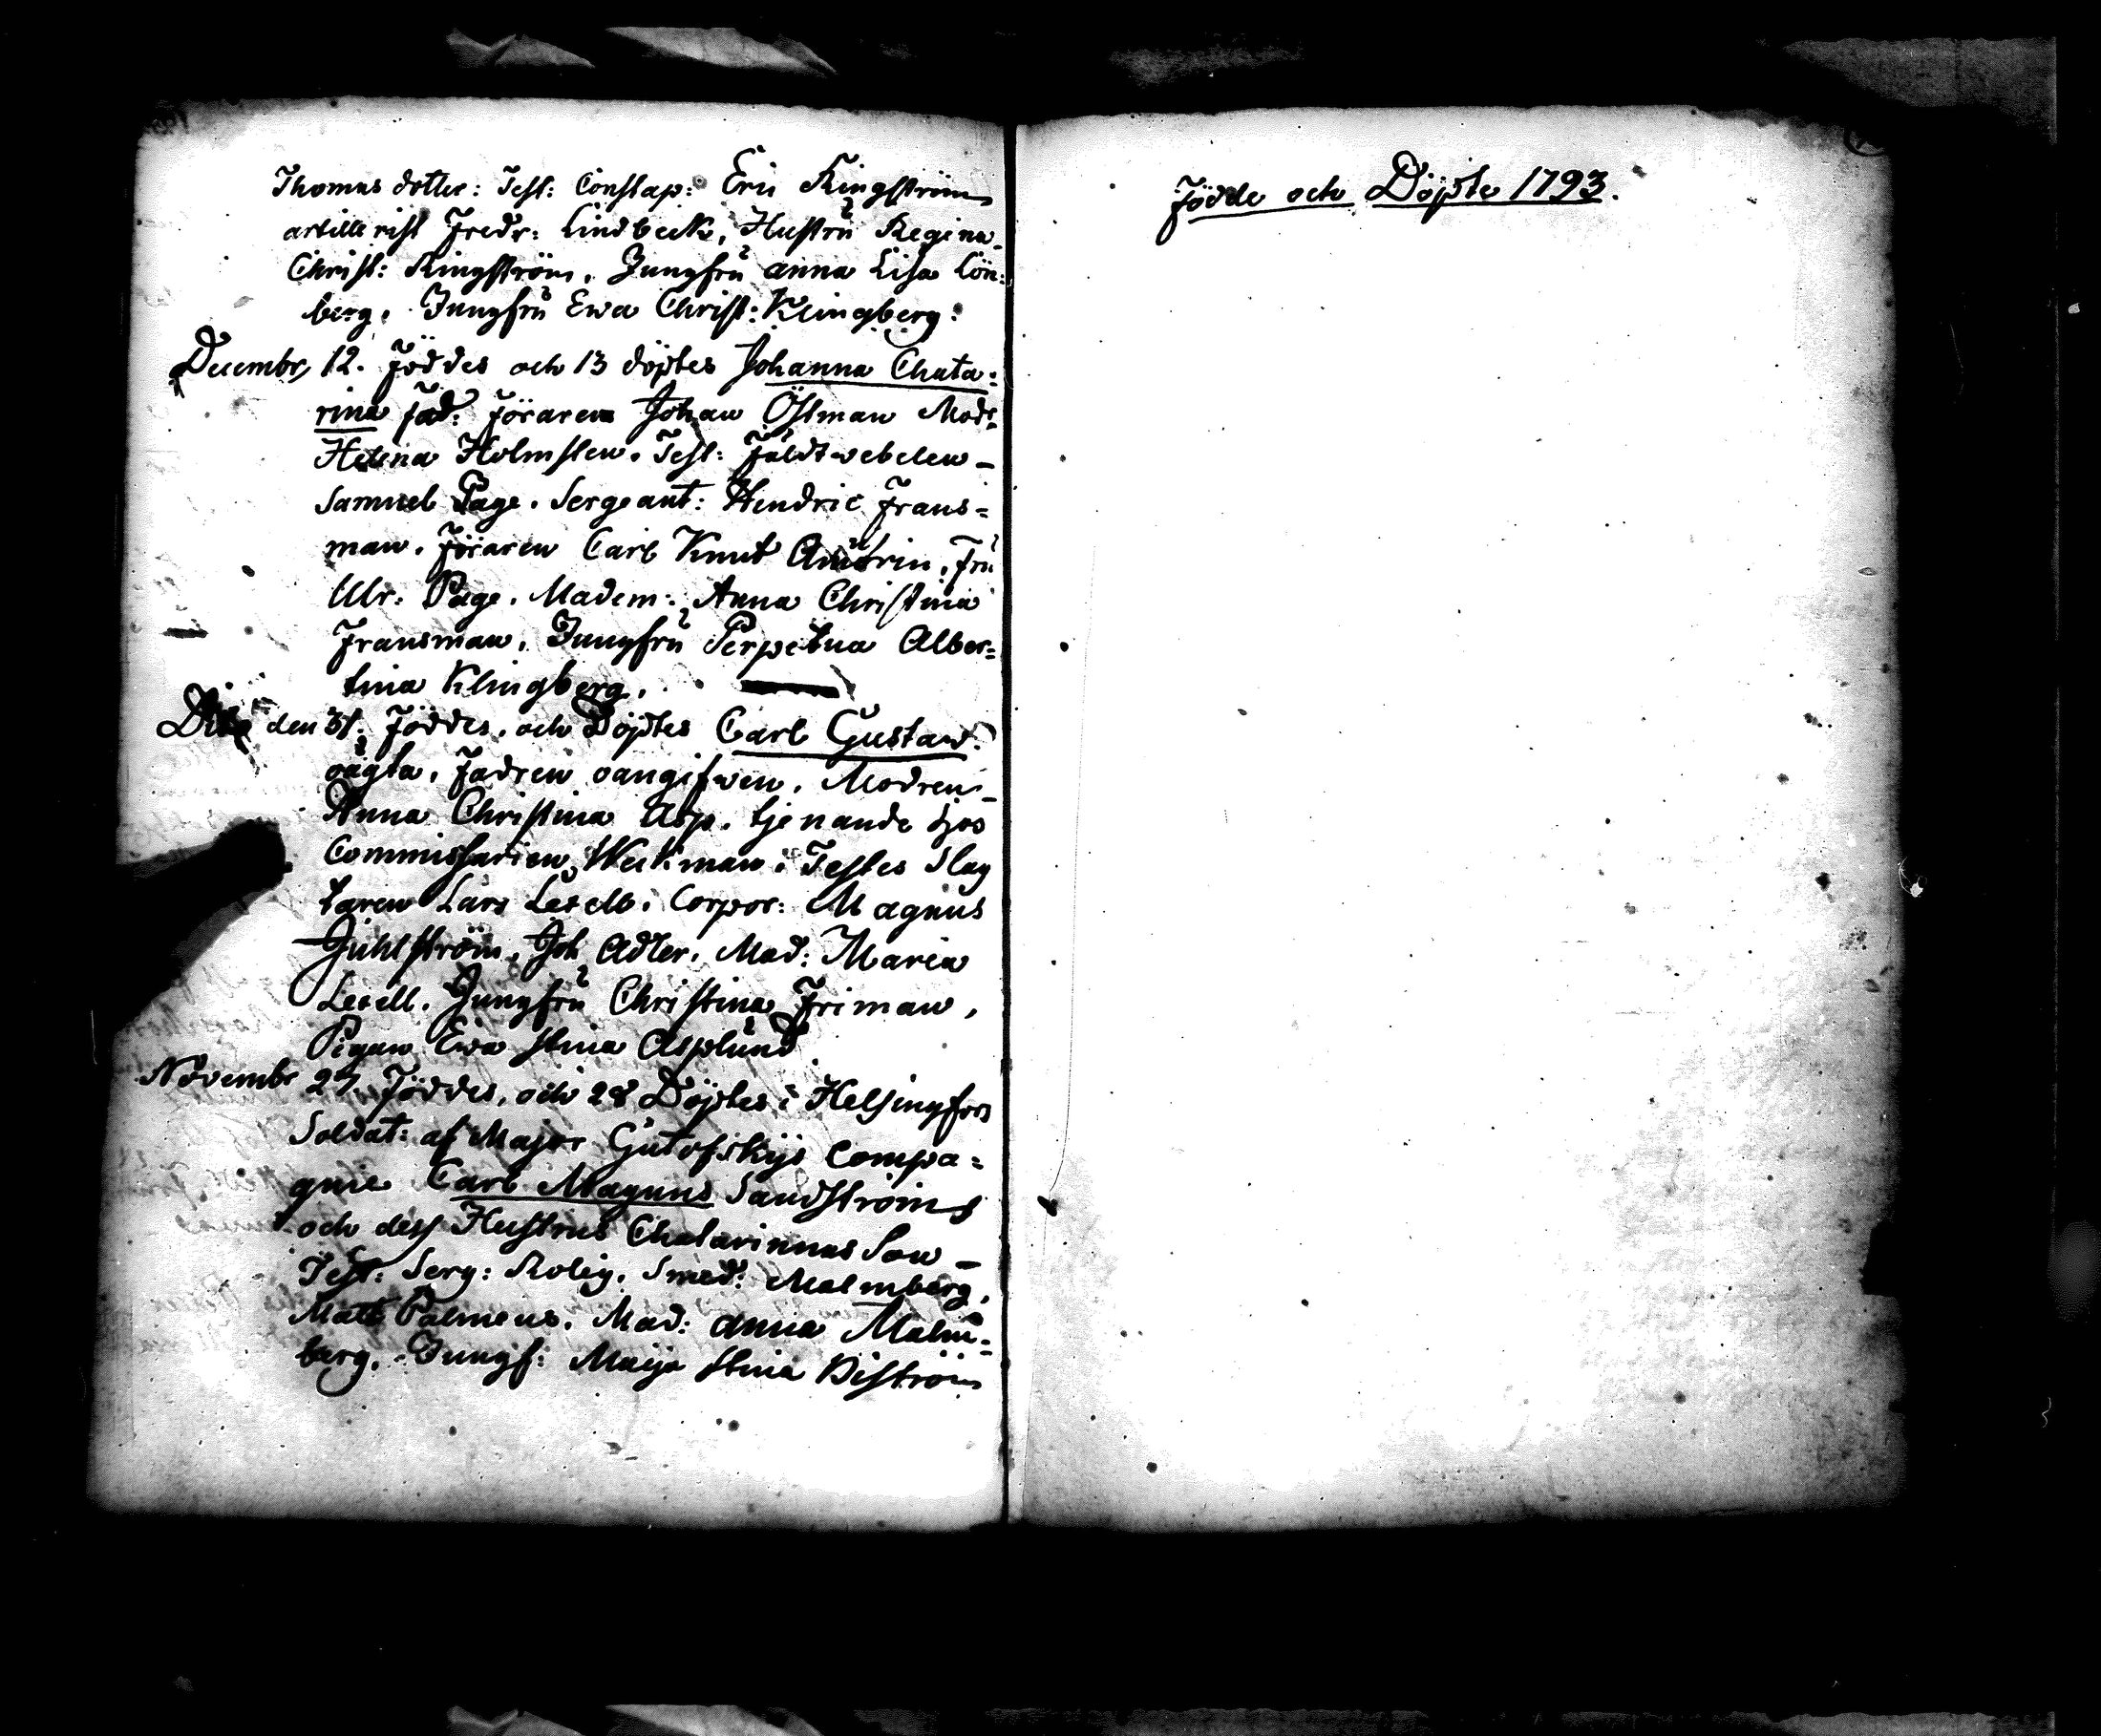 Thomas dotter: Test: Constap: Eric Ringström
artillerist Fredr: Lindbeck, Hustru Regina
Christ: Ringström, Jungfru anna Lisa Lön:
berg, Jungfru Ewa Christ: Klingberg:
Decembr, 12. Föddes och 13 döptes Johanna Chata:
rina fad: Föraren Johan Östman Modr
Helena Holmsten. Test: Fäldtwebelen
Samuel Page. Sergeant: Hendric Frans=
man. Föraren Carl Knut Fru
Ulr: Page. Madem: Anna Christina
Fransman. Jungfru Perpetua Alber=
tina Klingberg.
den 31: Föddes, och Döptes Carl Gustaw:
oägta, Fadren oangifwen. Modren
Anna Christina Asp. tjenande hos
Commissarien Weckman. Testes Slag
taren Lars Lesell. Corpor: Magnus
Juhlström, Joh Adler. Mad: Maria
Lesell. Jungfru Christina Friman,
Pigan Ewa Stina Asplund
Novembr 27. Föddes, och 28 Döptes i Helsingfors
Soldat: af Major Gutofskijs Compa=
gnie Carl Magnus Sandströms
och dess Hustrus Chatarinnas Son
Test: Serg: Rolig. Smed: Malmberg,
Matts Palmeus. Mad: Anna Malm=
berg. Jungf: Maija Stina Biström
Födde och Döpte 1793.